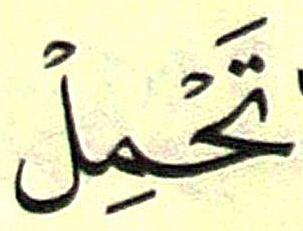 تَحْمِلْ